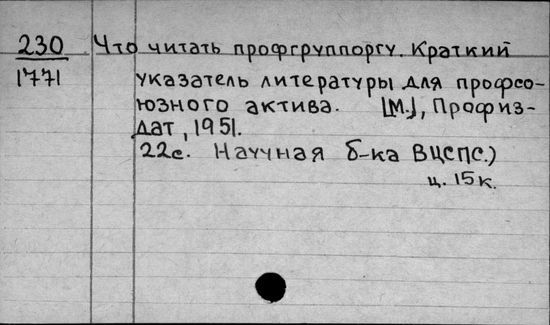 230 Что читать профгруппоргу. Краткий
1771 указатель литературы для профсо-
юзного актива. [М.], Профиз-
дат, 1951.
22с. Научная б-ка ВЦСПС.)
ц. 15к.